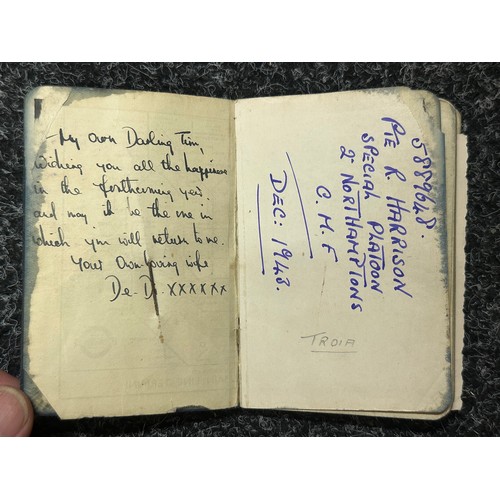 My Own Darling Tim,
Wishing you all the happiness
in the forthcoming year.
and may it be the one in
which you will return to me.
Your Own loving wife
De-Di. xxxxxx
5889648.
PTE R HARRISON
SPECIAL PLATOON
2ⁿ NORTHAMPTONS
C. M. F
DEC: 1943.
TROIA